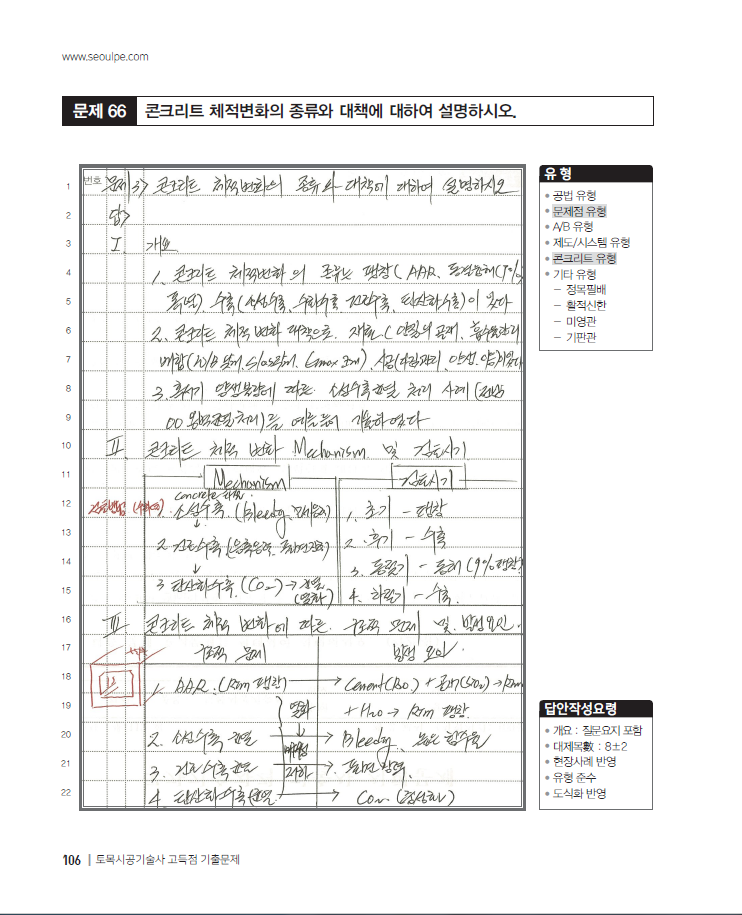 www.seoulpe.com
문제 66 콘크리트 체적변화의 종류와 대책에 대하여 설명하시오.
번호 문제13> 콘크리트 체적변화의 종류와 대책에 대하여 설명하시오
답>
I. 개요
1. 콘크리트 체적변화의 종류는 팽창(AAR, 동결융해(9%
팽창), 수축(소성수축, 수화수축, 건조수축, 탄산화수축)이 있다
2. 콘크리트 체적 변화 대책으로, 재료(양질의 골재,
배합(W/B S/a Gmax 시공(다짐관리, 양생
3. 혹서기 양생불량에 따른 소성수축균열 처리 사례
00 균열처리)를 예를들어 기술하였다
II. 콘크리트 체적 변화 Mechanism 및 검토시기
Mechanism
검토시기
concrete
1. 소성수축 (Bleedg,
↓
2. 건조수축
↓
3 탄산화수축 (Co₂) → 균열
(열화)
1. 초기 - 팽창
2. 후기 - 수축
3. 동절기 - 동해 (9% 팽창)
4. 하절기 - 수축.
III. 콘크리트 체적 변화에 따른 구조적 문제 및 발생요인.
구조적 문제
발생 요인
1. AAR (Rim 팽창) → Cement(R₂O) + 골재(SiO₂) → Rim
+ H₂O → Rim 팽창
2. 소성수축 균열 → Bleedg, 높은
3. 건조수축균열 →
4. 탄산화수축 균열 → Co₂
열화
↓
내구성
저하
유 형
• 공법 유형
• 문제점 유형
• A/B 유형
• 제도/시스템 유형
• 콘크리트 유형
• 기타 유형
– 정목필배
– 활적신한
– 미영관
– 기판관
답안작성요령
• 개요 : 질문요지 포함
• 대제목數 : 8±2
• 현장사례 반영
• 유형 준수
• 도식화 반영
1
2
3
4
5
6
7
8
9
10
11
12
13
14
15
16
17
18
19
20
21
22
106 | 토목시공기술사 고득점 기출문제